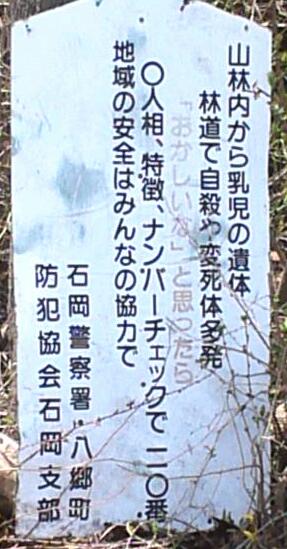 山林内から乳児の遺体
林道で自殺や変死体多発
「おかしいな」と思ったら
〇人相、特徴、ナンバーチェックで一一〇番
地域の安全はみんなの協力で
石岡警察署・八郷町
防犯協会石岡支部